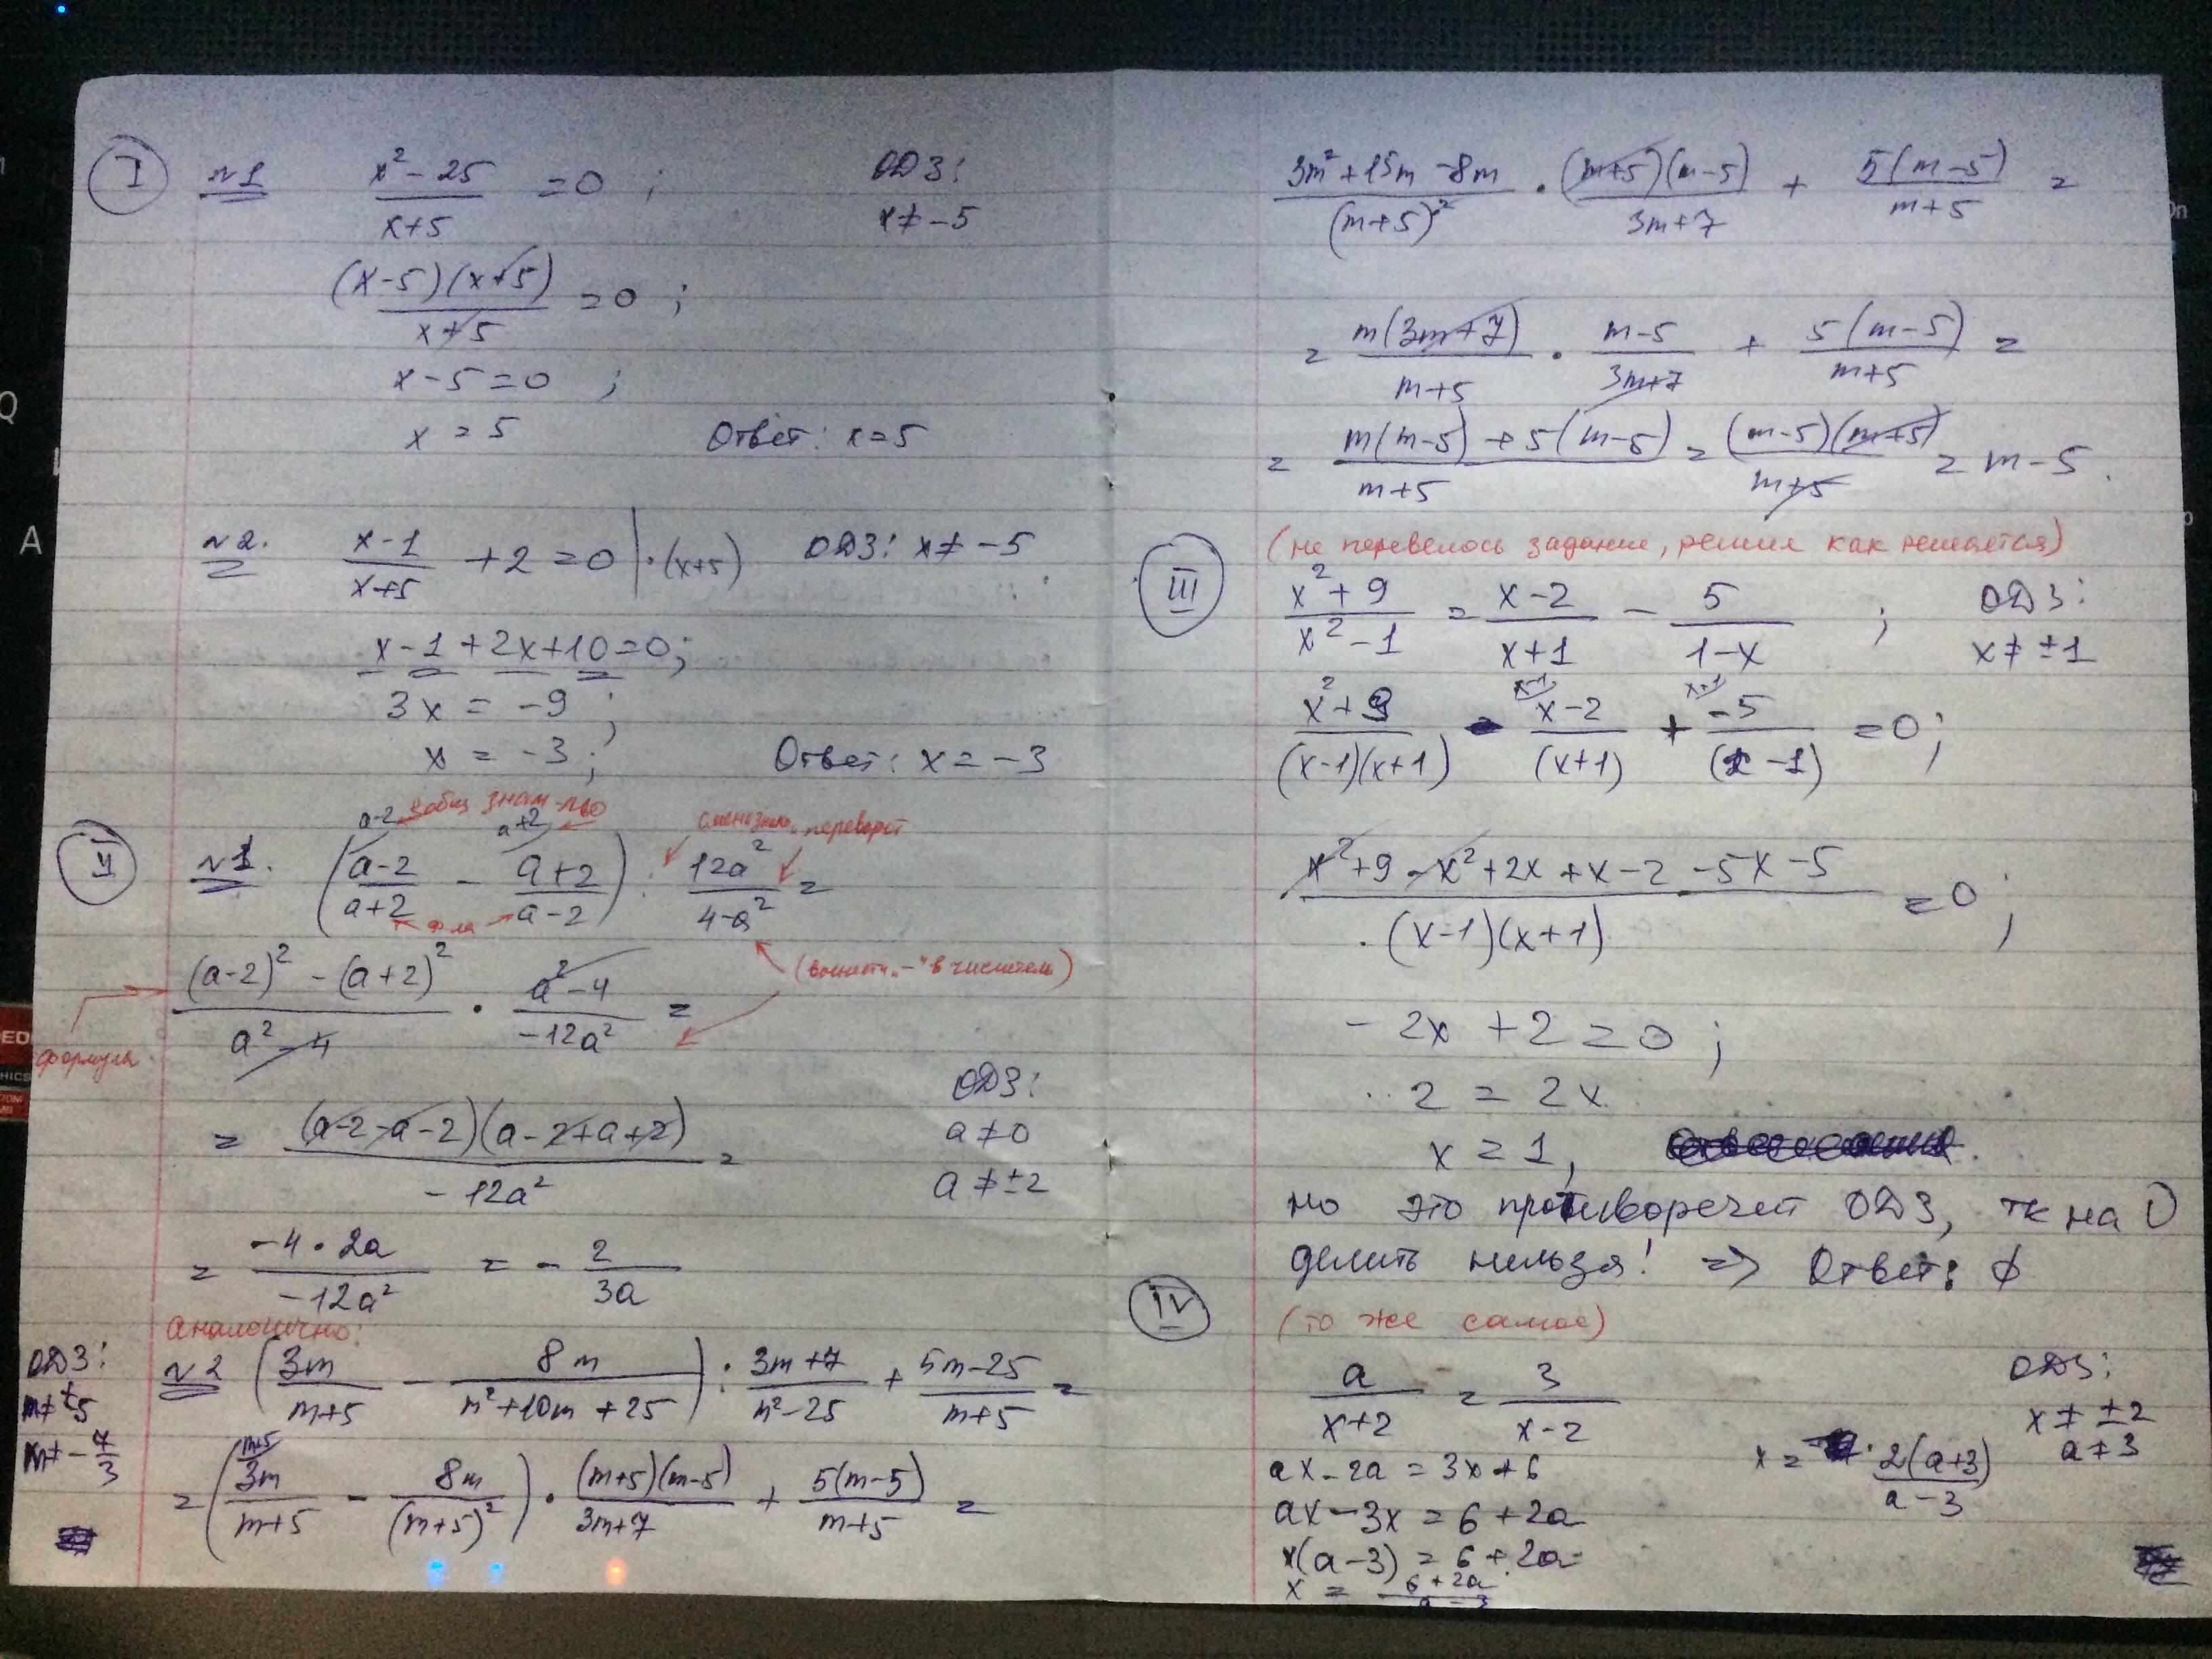 I
№1 (x² − 25)/(x+5) = 0 ; ОДЗ:
x ≠ −5
((x−5)(x+5))/(x+5) = 0 ;
x − 5 = 0 ;
x = 5 Ответ: x = 5
№2. (x−1)/(x+5) + 2 = 0 | ·(x+5) ОДЗ: x ≠ −5
x − 1 + 2x + 10 = 0;
3x = −9 ;
x = −3 ; Ответ: x = −3
II
a−2 a+2 переворот
№1. ((a−2)/(a+2) − (a+2)/(a−2)) : 12a²/(4−a²) =
ф-ла
((a−2)² − (a+2)²)/(a² − 4) · (a² − 4)/(−12a²) =
(вынести „−" в числитель)
формула
= ((a−2−a−2)(a−2+a+2))/(−12a²) =
ОДЗ:
a ≠ 0
a ≠ ±2
= (−4 · 2a)/(−12a²) = − 2/(3a)
аналогично:
ОДЗ:
m ≠ ±5
m ≠ −7/3
№2 (3m/(m+5) − 8m/(m²+10m+25)) : (3m+7)/(m²−25) + (5m−25)/(m+5) =
m+5
= (3m/(m+5) − 8m/(m+5)²) · ((m+5)(m−5))/(3m+7) + (5(m−5))/(m+5) =
(3m²+15m−8m)/(m+5)² · ((m+5)(m−5))/(3m+7) + (5(m−5))/(m+5) =
= (m(3m+7))/(m+5) · (m−5)/(3m+7) + (5(m−5))/(m+5) =
= (m(m−5) + 5(m−5))/(m+5) = ((m−5)(m+5))/(m+5) = m−5.
(не перевелось задание, решил как решается)
III
(x²+9)/(x²−1) = (x−2)/(x+1) − 5/(1−x) ; ОДЗ:
x ≠ ±1
x−1 x+1
(x²+9)/((x−1)(x+1)) − (x−2)/(x+1) + −5/(x−1) = 0;
(x²+9−x²+2x+x−2−5x−5)/((x−1)(x+1)) = 0;
−2x + 2 = 0 ;
2 = 2x
x = 1,
но это противоречит ОДЗ, тк на 0
делить нельзя! => Ответ: ∅
IV
(то же самое)
a/(x+2) = 3/(x−2) ОДЗ:
x ≠ ±2
a ≠ 3
ax − 2a = 3x + 6
x = 2(a+3)/(a−3)
ax − 3x = 6 + 2a
x(a−3) = 6 + 2a
x = (6+2a)/(a−3)